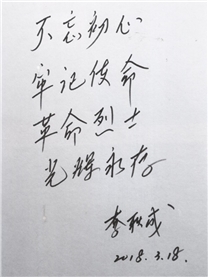 不忘初心
牢记使命
革命烈士
光辉永存
李秋成
2018.3.18.